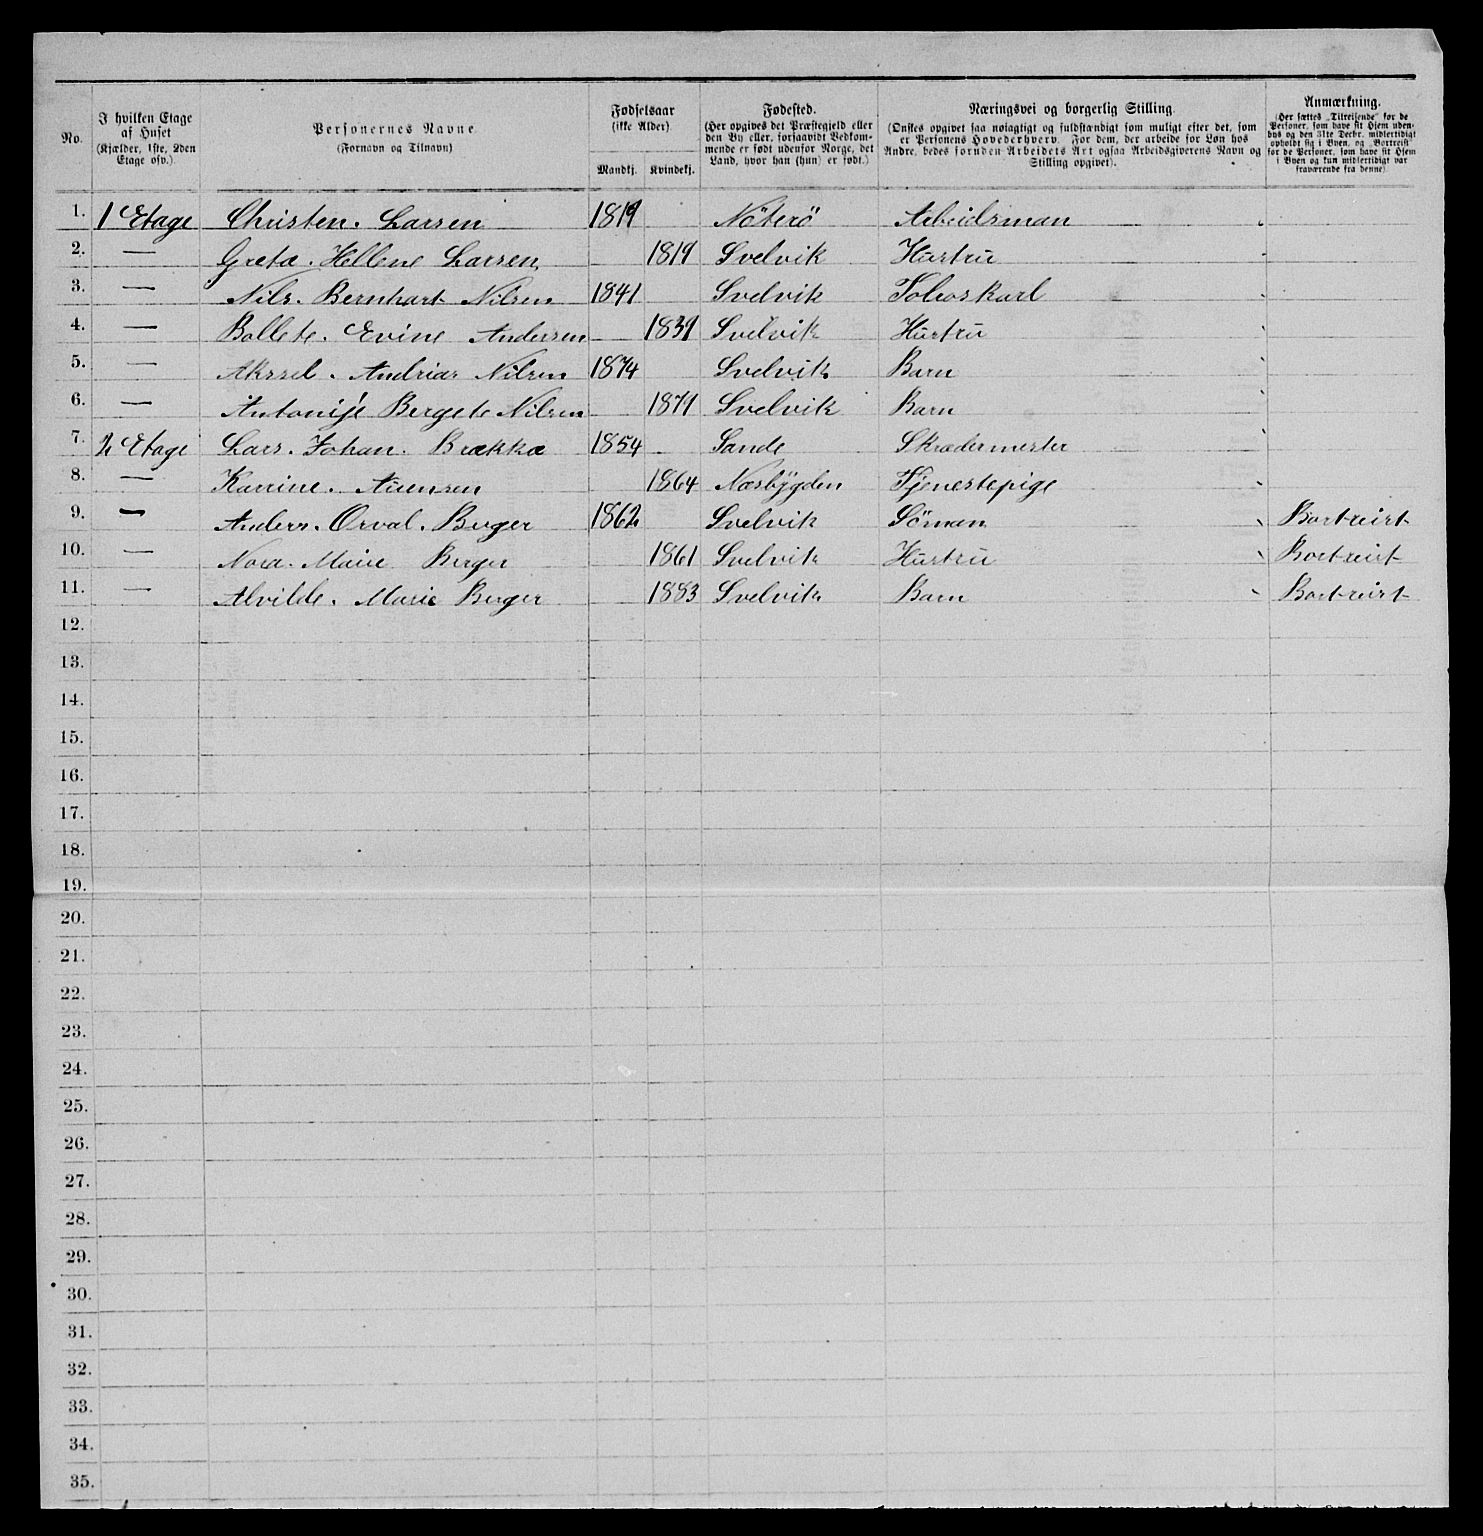 No.
I hvilken Etage
af Huset
(Kjælder, 1ste, 2den
Etage osv.).
Personernes Navne.
(Fornavn og Tilnavn)
Fødselsaar
(ikke Alder).
Mandkj. Kvindekj.
Fødested.
(Her opgives det Præstegjeld eller
den By eller, forsaavidt Vedkom-
mende er født udenfor Norge, det
Land, hvor han (hun) er født.)
Næringsvei og borgerlig Stilling.
(Ønskes opgivet saa nøiagtigt og fuldstændigt som muligt efter det, som
er Personens Hovederhverv. For dem, der arbeide for Løn hos
Andre, bedes foruden Arbeidets Art ogsaa Arbeidsgiverens Navn og
Stilling opgivet).
Anmærkning.
(Her sættes „Tilreisende" for de
Personer, som have sit Hjem uden-
bys og den 31te Decbr. midlertidigt
opholdt sig i Byen, og „Bortreist"
for de Personer, som have sit Hjem
i Byen og kun midlertidigt var
fraværende fra denne)
1. 1 Etage Christen. Larsen 1819 Nöterö Arbeidsman
2. — Greta. Hellene Larsen 1819 Svelvik Hustru
3. — Nils. Bernhart Nilsen 1841 Svelvik
4. — Bollete. Evine Andersen 1839 Svelvik Hustru
5. — Akssel. Andrias Nilsen 1874 Svelvik Barn
6. — Bergete Nilsen 1879 Svelvik Barn
7. 2 Etage Lars. Johan. Brækka 1854 Sande Skrædermester
8. — Karrine. 1864 Næsbÿgden Tjenestepige
9. — Anders. Orval. Berger 1862 Svelvik Söman Bortreist
10. — Nora. Marie Berger 1861 Svelvik Hustru Bortreist
11. — Alvilde. Marie Berger 1883 Svelvik Barn Bortreist
12.
13.
14.
15.
16.
17.
18.
19.
20.
21.
22.
23.
24.
25.
26.
27.
28.
29.
30.
31.
32.
33.
34.
35.